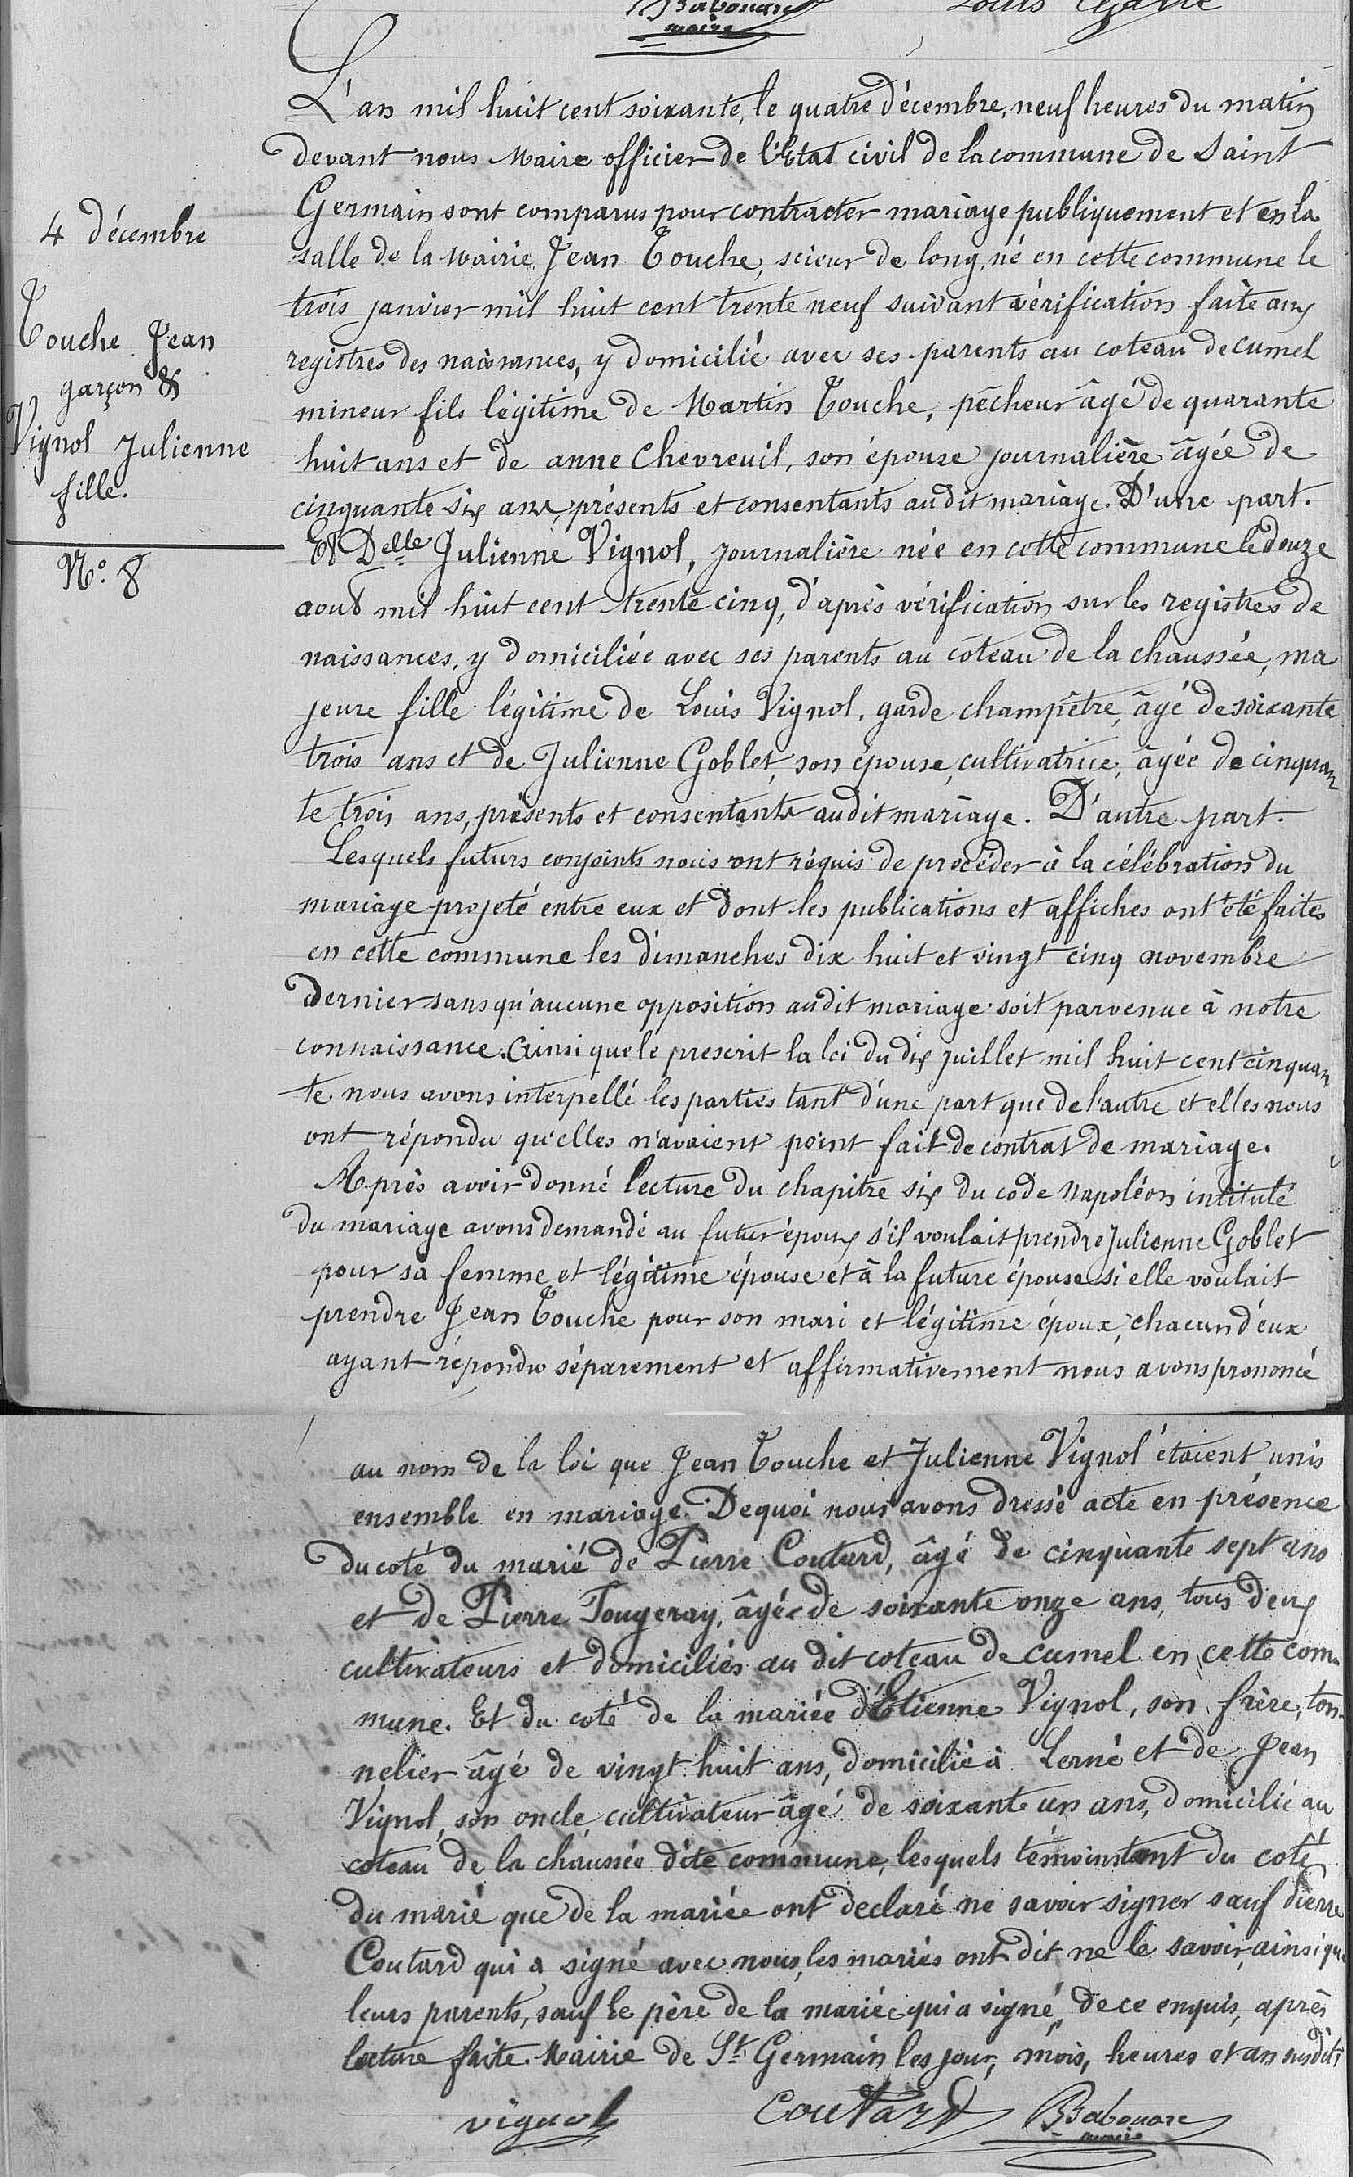 Babouare
maire
Louis
L'an mil huit cent soixante, le quatre décembre, neuf heures du matin
devant nous Maire officier de l'Etat civil de la commune de Saint
Germain sont comparus pour contracter mariage publiquement et en la
4 décembre
salle de la mairie Jean Touche, scieur de long, né en cette commune le
trois janvier mil huit cent trente neuf suivant vérification faite aux
Touche Jean
registres des naissances, y domicilié avec ses parents au coteau de cumel
garçon &
mineur fils légitime de Martin Touche, pêcheur âgé de quarante
Vignol Julienne
huit ans et de anne Chevreuil, son épouse journalière âgée de
fille.
cinquante six ans, présents et consentants audit mariage. D'une part.
Et Delle Julienne Vignol, journalière née en cette commune le douze
N.° 8
aout mil huit cent trente cinq, d'après vérification sur les registres de
naissances, y domiciliée avec ses parents au coteau de la chaussée, ma
jeure fille légitime de Louis Vignol, garde champêtre, âgé de soixante
trois ans et de Julienne Goblet, son épouse, cultivatrice, âgée de cinquan
te trois ans, présents et consentants audit mariage. D'autre part.
Lesquels futurs conjoints nous ont réquis de procéder à la célébration du
mariage projeté entre eux et dont les publications et affiches ont été faites
en cette commune les dimanches dix huit et vingt cinq novembre
dernier sans qu'aucune opposition audit mariage soit parvenue à notre
connaissance. Ainsi que le prescrit la loi du dix juillet mil huit cent cinquan
te nous avons interpellé les parties tant d'une part que de l'autre et elles nous
ont répondu qu'elles n'avaient point fait de contrat de mariage.
Après avoir donné lecture du chapitre six du code Napoléon intitulé
du mariage avons demandé au futur époux s'il voulait prendre Julienne Goblet
pour sa femme et légitime épouse et à la future épouse si elle voulait
prendre Jean Touche pour son mari et légitime époux, chacun d'eux
ayant répondu séparement et affirmativement nous avons prononcé
au nom de la loi que Jean Touche et Julienne Vignol étaient unis
ensemble en mariage. De quoi nous avons dressé acte en présence
du coté du marié de Pierre Coutard, âgé de cinquante sept ans
et de Pierre Fougeray, âgée de soixante onze ans, tous deux
cultivateurs et domiciliés au dit coteau de cumel en cette com-
mune. Et du coté de la mariée d'Etienne Vignol, son frère, ton-
nelier âgé de vingt huit ans, domicilié à Lerné et de Jean
Vignol, son oncle, cultivateur âgé de soixante un ans, domicilié au
coteau de la chaussée dite commune, lesquels témoins tant du coté
du marié que de la mariée ont declaré ne savoir signer sauf Pierre
Coutard qui a signé avec nous, les mariés ont dit ne le savoir, ainsi que
leurs parents, sauf le père de la mariée qui a signé, de ce enquis, après
lecture faite. Mairie de St Germain les jour, mois, heures et an susdits
vignol Coutard Babouare
maire